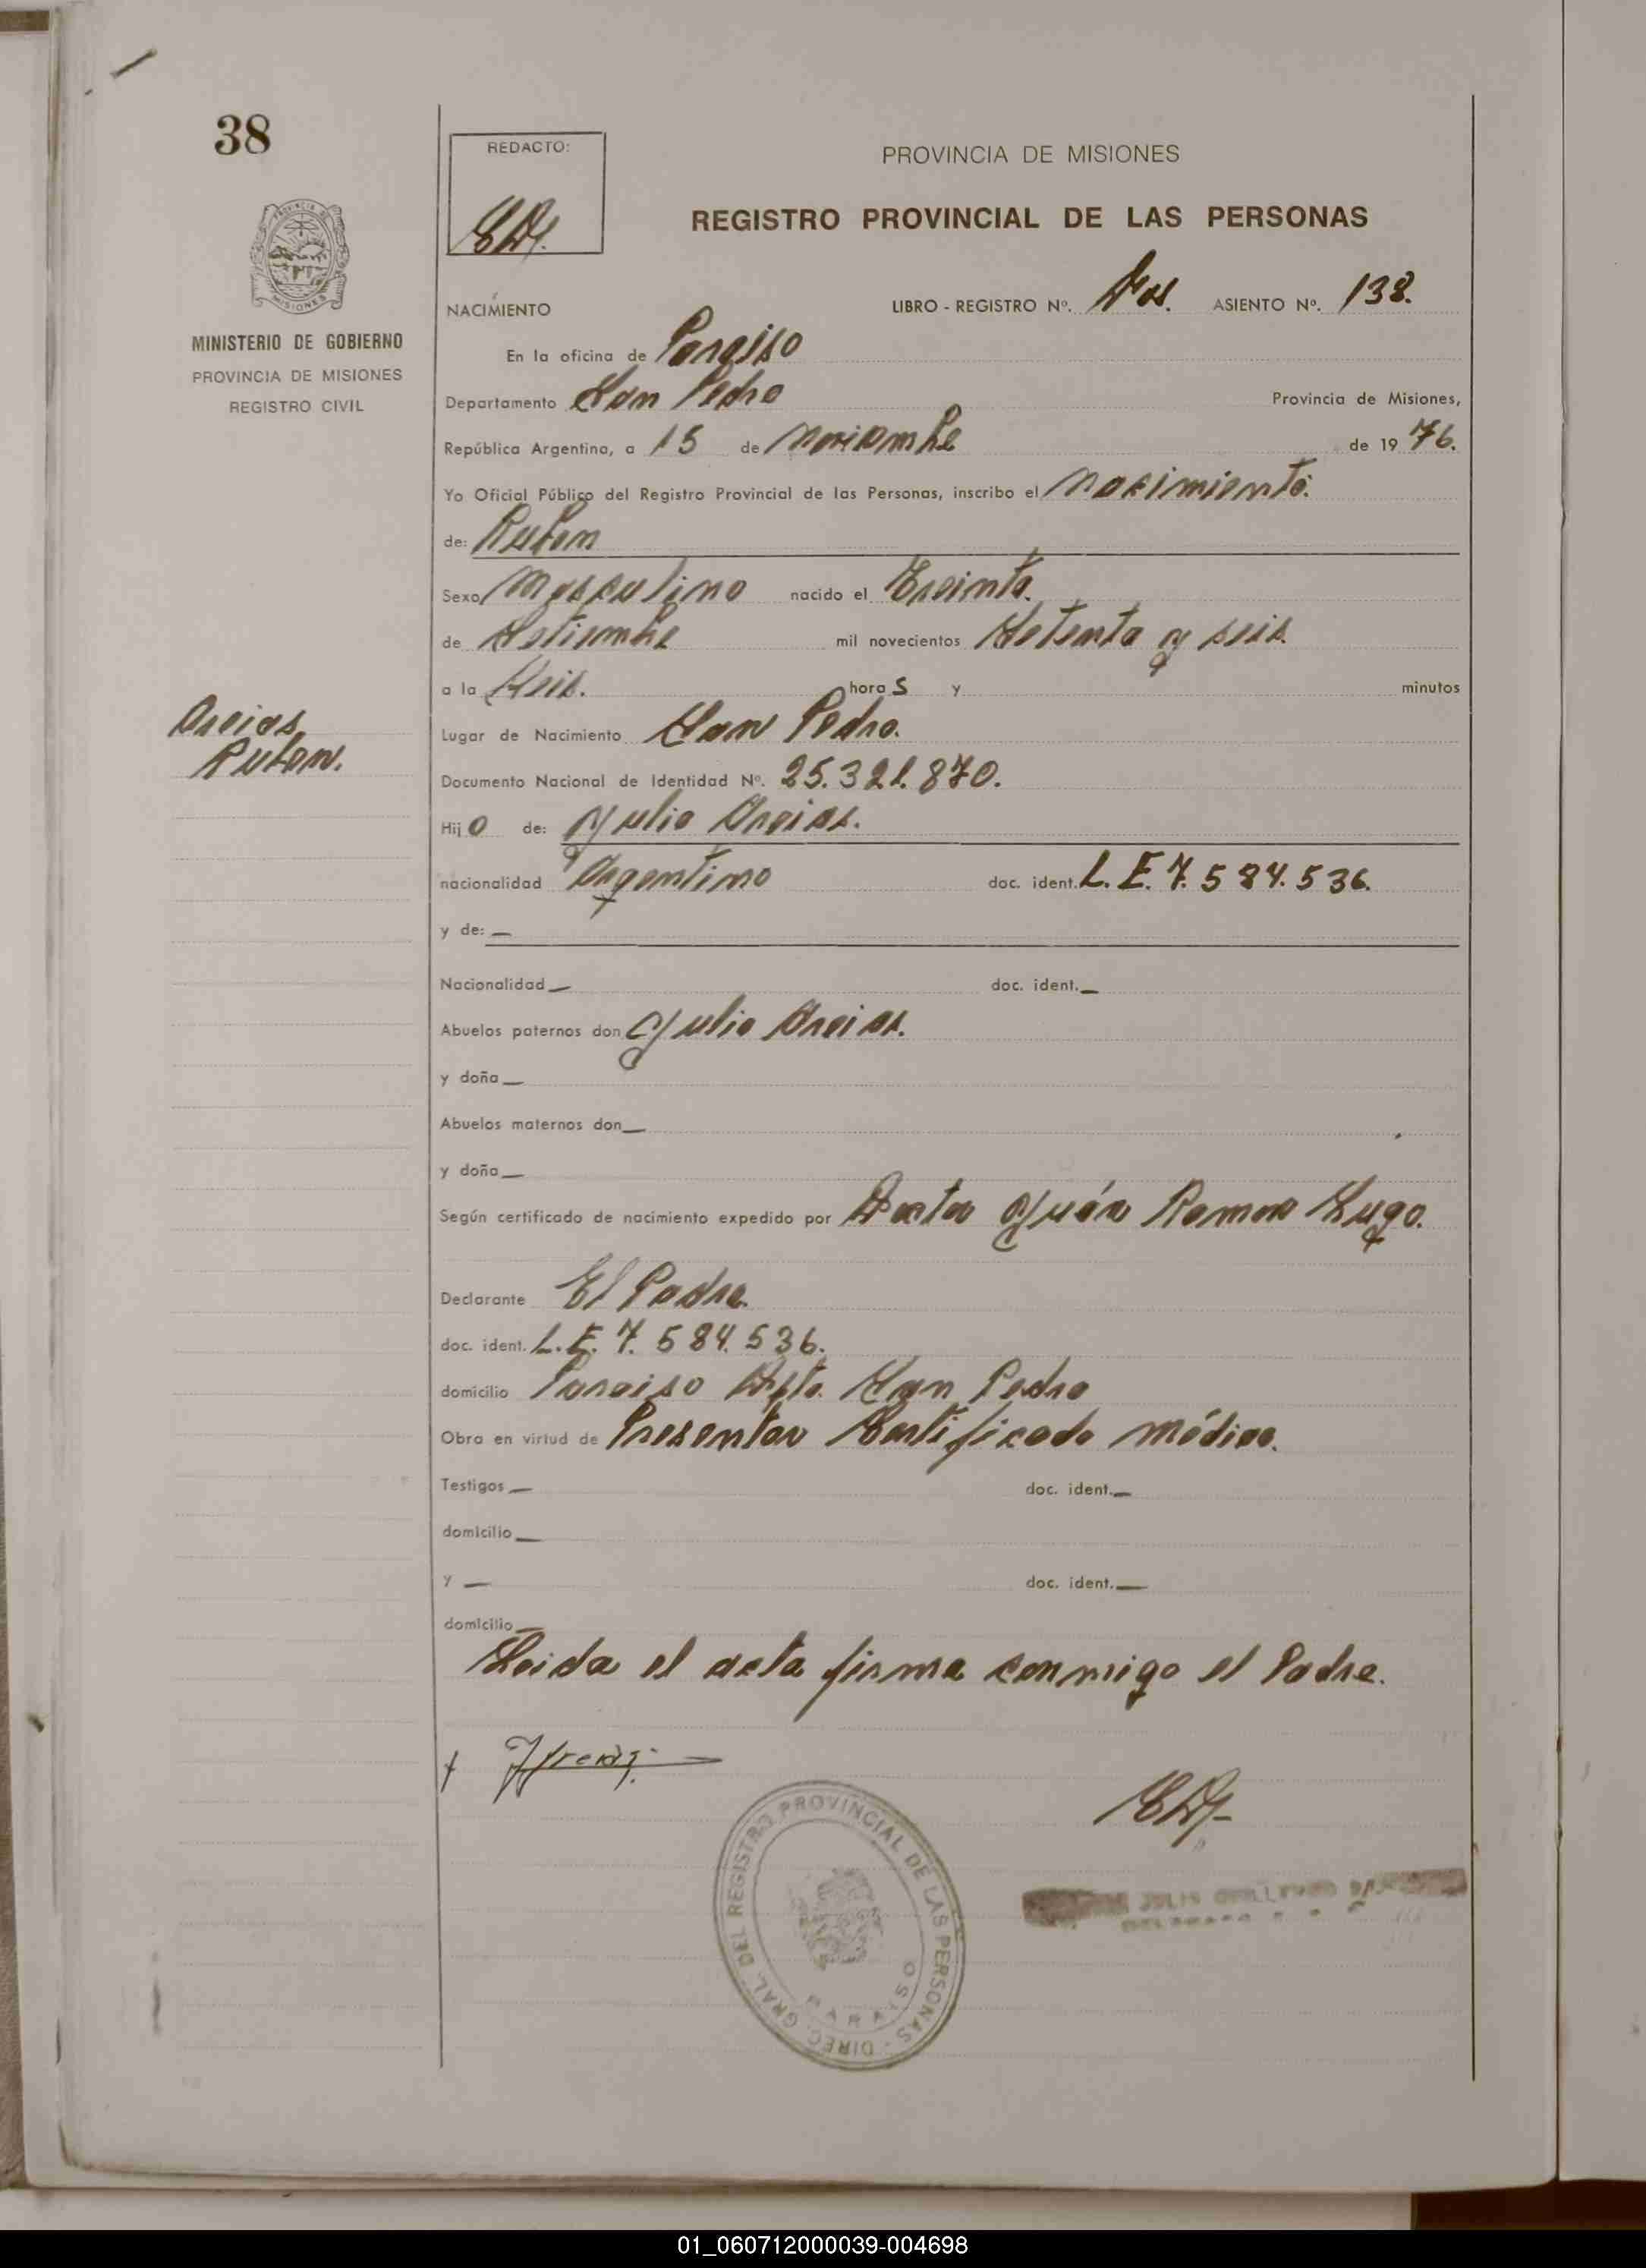 38
REDACTO:
PROVINCIA DE MISIONES
REGISTRO PROVINCIAL DE LAS PERSONAS
PROVINCIA DE MISIONES
MINISTERIO DE GOBIERNO
PROVINCIA DE MISIONES
REGISTRO CIVIL
NACIMIENTO LIBRO - REGISTRO Nº. Dos. ASIENTO Nº. 138.
En la oficina de Paraiso
Departamento San Pedro Provincia de Misiones,
República Argentina, a 15 de noviembre de 1976.
Yo Oficial Público del Registro Provincial de las Personas, inscribo el nacimiento.
de: Ruben
Sexo Masculino nacido el Treinta.
de Setiembre mil novecientos Setenta y seis.
a la Seis. horas y minutos
Areias
Ruben.
Lugar de Nacimiento San Pedro.
Documento Nacional de Identidad Nº. 25.321.870.
Hijo de: Julio Areias.
nacionalidad Argentino doc. ident. L.E. 7.584.536.
y de: —
Nacionalidad — doc. ident. —
Abuelos paternos don Julio Areias.
y doña —
Abuelos maternos don —
y doña —
Según certificado de nacimiento expedido por Doctor Juán Ramon Lugo.
Declarante El Padre.
doc. ident. L.E. 7.584.536.
domicilio Paraiso Dpto. San Pedro
Obra en virtud de Presentar Certificado médico.
Testigos — doc. ident. —
domicilio —
y — doc. ident. —
domicilio —
Leida el acta firma conmigo el Padre.
JAreias
DIREC. GRAL. DEL REGISTRO PROVINCIAL DE LAS PERSONAS
PARAISO
JULIO
01_060712000039-004698